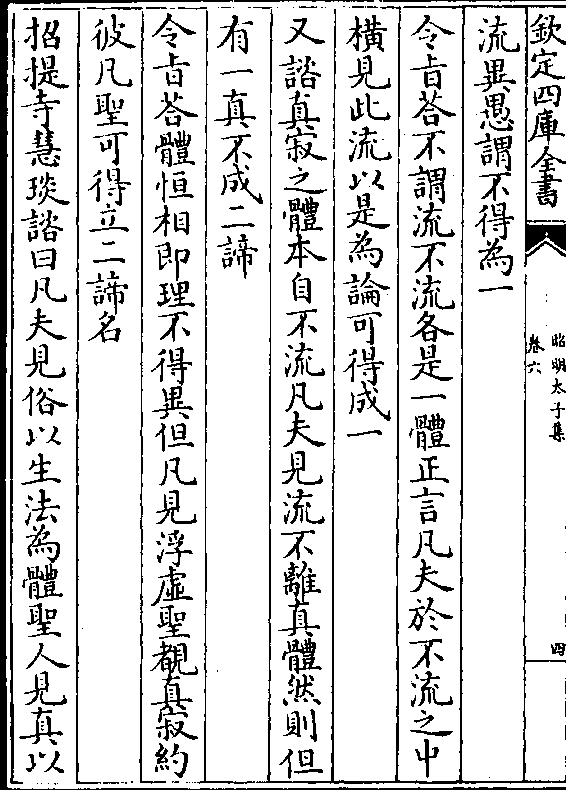 欽定四庫全書
昭明太子集
卷六
四
流異愚謂不得為一
令旨荅不謂流不流各是一體正言凡夫於不流之中
横見此流以是為論可得成一
又諮真寂之體本自不流凡夫見流不離真體然則但
有一真不成二諦
令旨荅體恒相即理不得異但凡見浮虛聖覩真寂約
彼凡聖可得立二諦名
招提寺慧琰諮曰凡夫見俗以生法為體聖人見真以